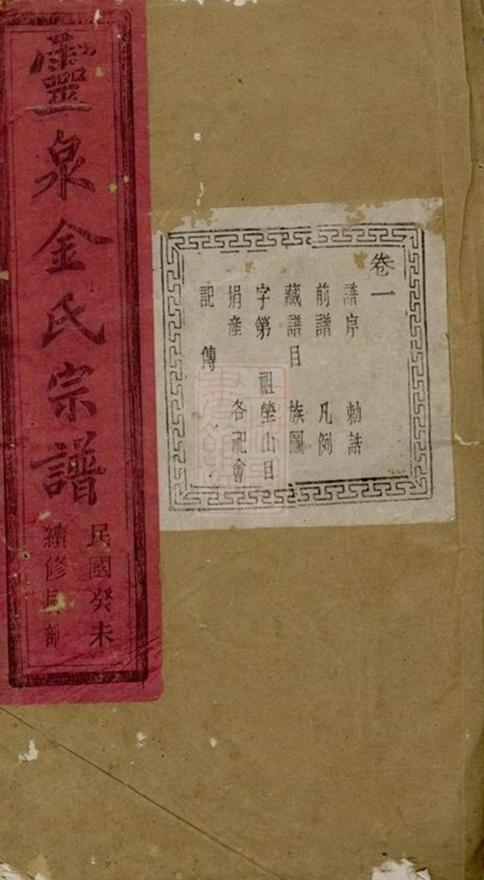 靈泉金氏宗譜
民國癸未
續修
卷一
譜序 勅誥
前譜 凡例
藏譜目 族圖
字第 祖塋山目
捐產 各祀會
記 傳